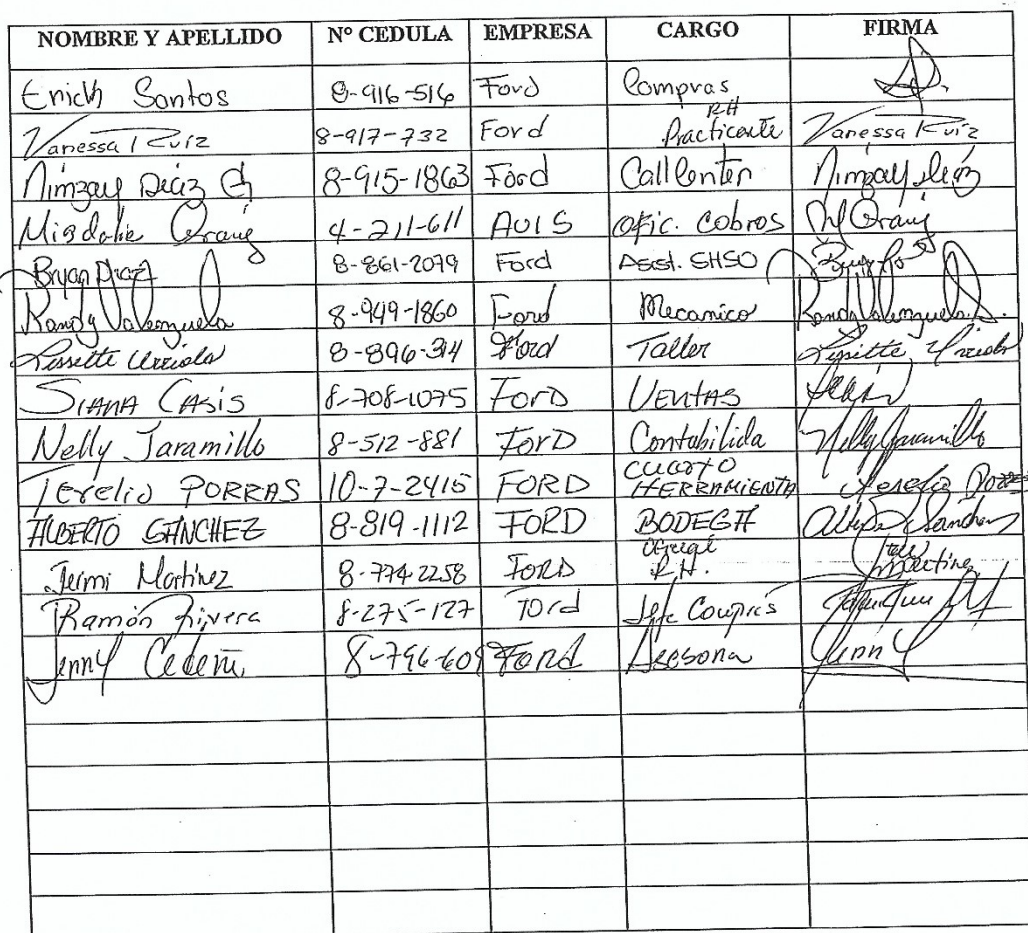 NOMBRE Y APELLIDO Nº CEDULA EMPRESA CARGO FIRMA
Erich Santos 8-916-516 Ford Compras
Vanessa Ruiz 8-917-732 Ford RH Practicante Vanessa Ruiz
Nimzay Diaz G 8-915-1863 Ford Call Center Nimzay
Migdalia 4-211-611 AVIS Ofic. Cobros
Bryan Diaz 8-861-2079 Ford Asist. SHSO
Randy Valenzuela 8-949-1860 Ford Mecanico Randy Valenzuela
Lissette Urriola 8-896-314 Ford Taller Lissette Urriola
SIANA CASIS 8-708-1075 FORD VENTAS
Nelly Jaramillo 8-512-881 FORD Contabilida Nelly Jaramillo
Terelio PORRAS 10-7-2415 FORD CUARTO HERRAMIENTA
ALBERTO SANCHEZ 8-819-1112 FORD BODEGA Sanchez
Jermi Martinez 8-774-2258 FORD R.H. Martinez
Ramón Rivera 8-275-127 Ford Jefe
Jenny 8-796-609 Ford Asesora Jenny